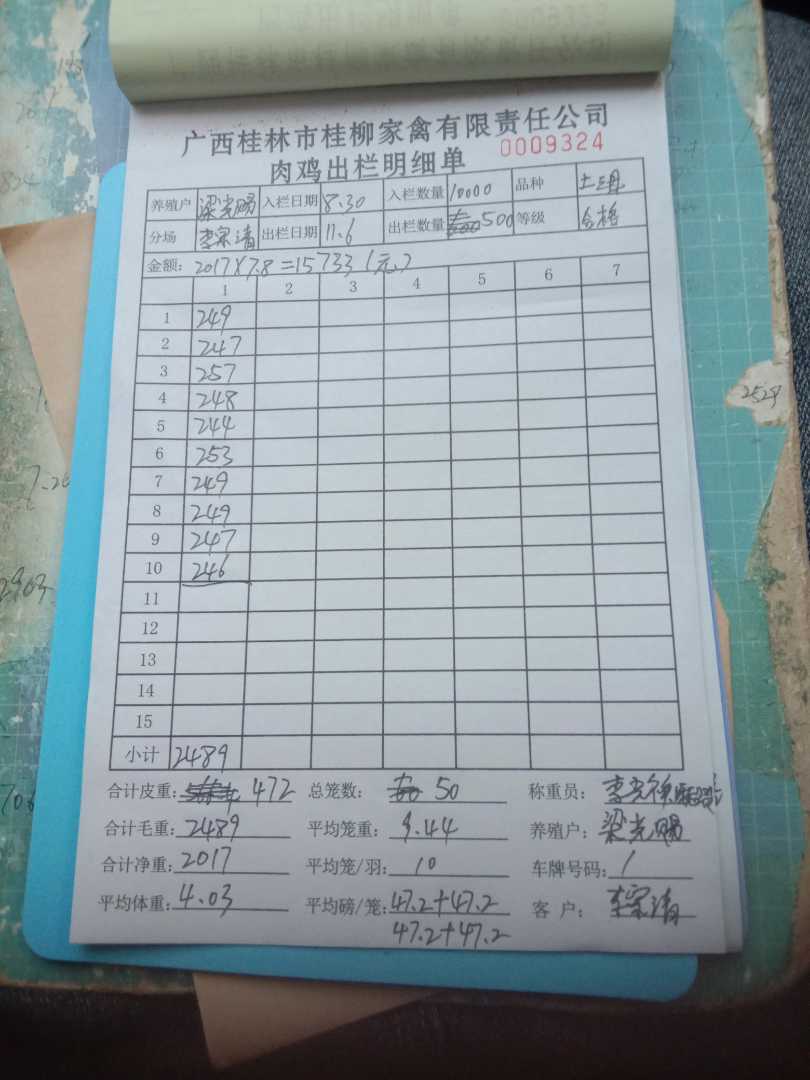 广西桂林市桂柳家禽有限责任公司
肉鸡出栏明细单 0009324
养殖户 梁光赐 入栏日期 8.30 入栏数量 10000 品种 土二
分场 李宗清 出栏日期 11.6 出栏数量 500 等级 合格
金额: 2017×7.8=15733(元)
1 2 3 4 5 6 7
1 249
2 247
3 257
4 248
5 244
6 253
7 249
8 249
9 247
10 246
11
12
13
14
15
小计 2489
合计皮重: 472 总笼数: 50 称重员: 李光
合计毛重: 2489 平均笼重: 9.44 养殖户: 梁光赐
合计净重: 2017 平均笼/羽: 10 车牌号码: 1
平均体重: 4.03 平均磅/笼: 47.2+47.2 客户: 李宗清
47.2+47.2
2529
2903